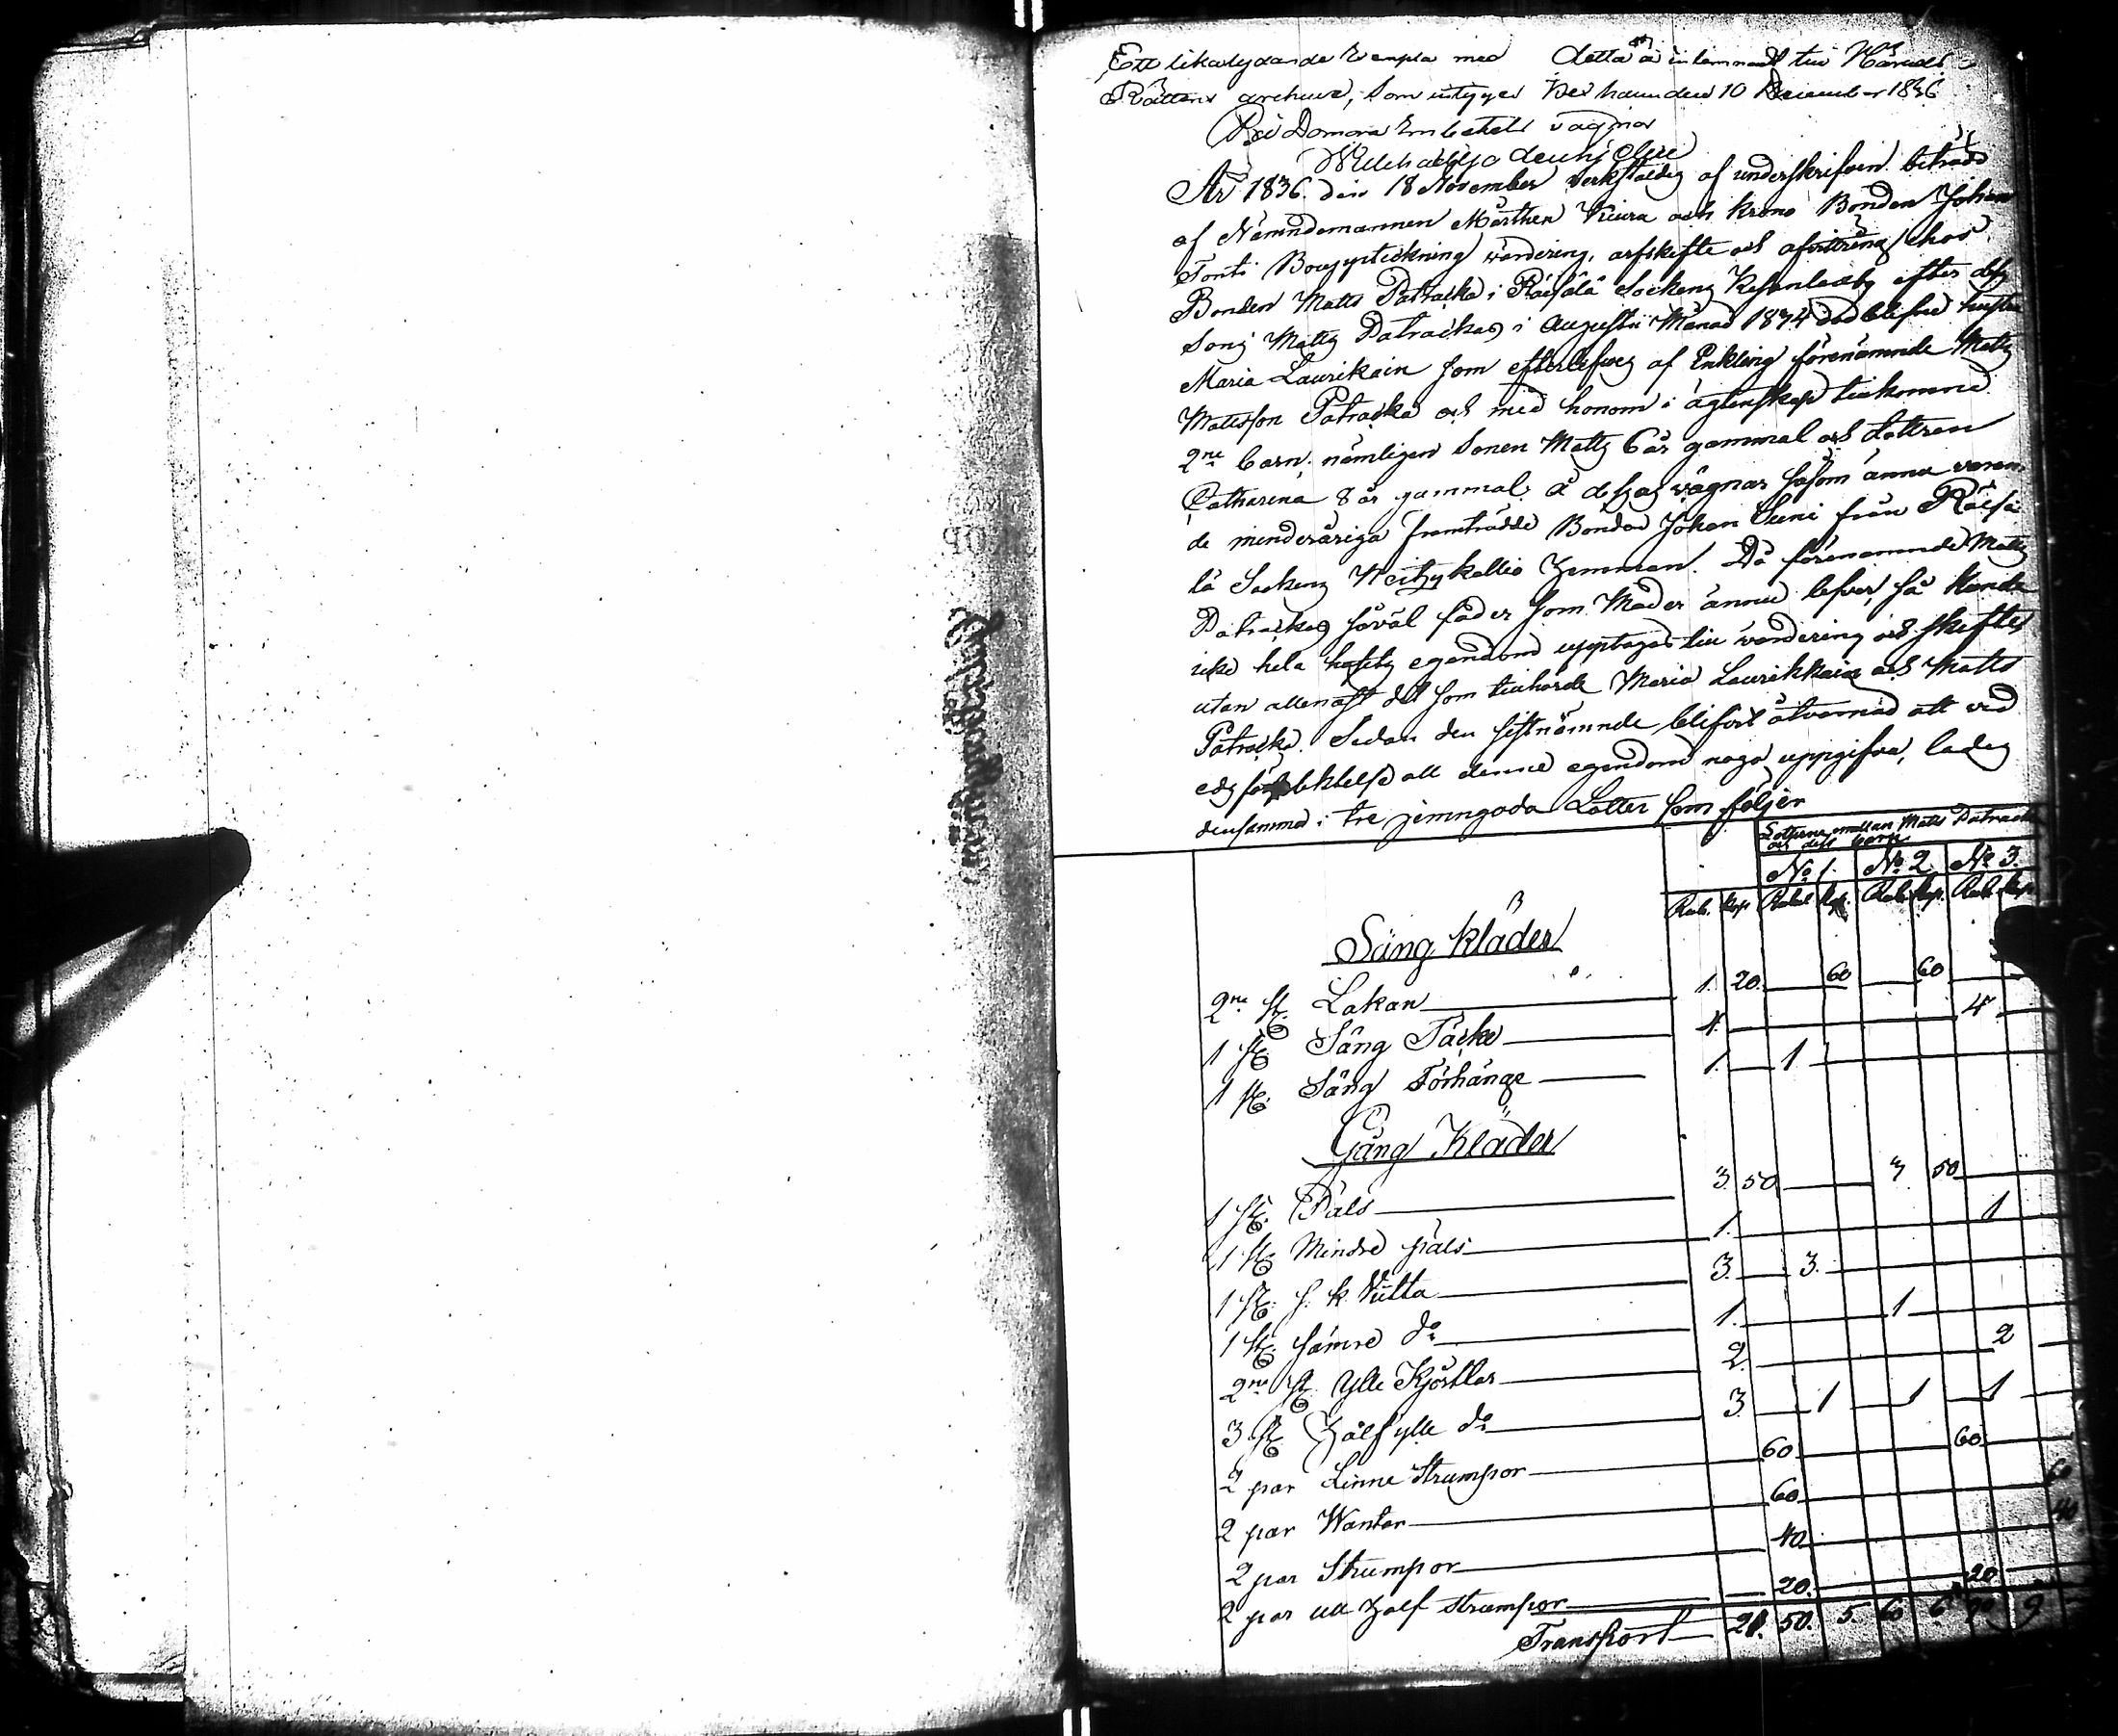 Ett likalydande Exempla med detta är inlemnadt till Härads
Rättens archive, som intygas den 10 December 1836
På Domare Embetets vägnar
År 1836 den 18 November verkstäldes af underskrifven biträdd
af Nämndemannen Mårthen Kiura och krono Bonden Johan
Tonti Bouppteckning värdering, arfskifte och afvittring hos
Bonden Matts Patracka i Räisälä Sockens by efter dess
Sons Matts Patrackas i Augusti Månad 1834 död blefne hustru
Maria Laurikain som efterlefves af Enkling förenämnde Matts
Mattsson Patracka och med honom i ägtenskap tillkomne
2ne barn, nämligen Sonen Matts 6 år gammal och Dottren
Catharina 8 år gammal, å dessas vägnar såsom ännu varan-
de minderåriga framträdde Bonden Johan Suni från Räisä
lä Sockens kallio Hemman. Då förenämnde Matts
Patrackas såväl fader som Moder ännu lefver, så kunde
icke hela egendom upptagas till värdering och skiftes
utan allenast det som tillhörde Maria Laurikkain och Matts
Patracka. Sedan den sistnämnde blifvit åtvarnad att vid
eds förpliktelse all denne egendom noga uppgifva, lades
densamma i tre jemngoda Lotter som följer
Lotterne mellan Matts Patracka
och dess barn
No 1. No 2 No 3.
Rub. Kop. Rubel Kop. Rub. Kop. Rub. Kop.
Säng kläder
2ne st. Lakan 1. 20. 60 60
1 st. Säng Täcke 4. 4
1 st. Säng Förhänge 1. 1
Gång Kläder
1 st. Päls 3. 50 3 50
1 st. Mindre päls 1. 1
1 st. s. k. Viitta 3. 3.
1 st. sämre do 1. 1
2ne st. Ylle Kjortlar 2. 2
3 st. Half ylle do 3. 1 1 1
2 par Linne Strumpor 60 60
2 par Wantar 60 60
2 par Strumpor 40. 40
2 par ull half strumpor 20. 20
Transport 21. 50. 5. 60 6 90 9